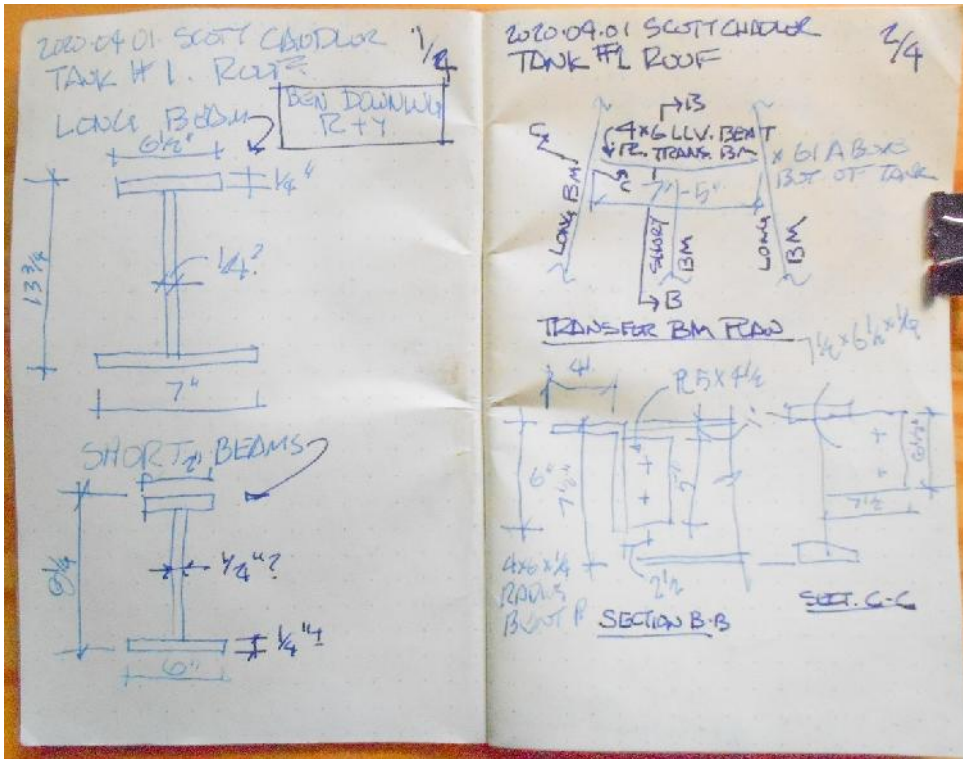 2020.04.01 SCOTT CANDLOR 1/4
TANK #1. ROOF
BEN DOWNING
R+Y
LONG BEAM
6½"
¼"
13¾
¼?
7"
SHORT BEAMS
2"
¼"?
¼"
6"
2020.04.01 SCOTT CHADLOR 2/4
TANK #1 ROOF
B
4×6 LLV. BENT
TRANS. BM
× 61 ABOVE
BOT OF TANK
C
7'-5"
LONG BM
SHORT BM
LONG BM
B
TRANSFER BM PLAN
7½ × 6½ × ½
4"
PL 5 × 4½
6"
7½"
6½"
7½
2½
4×6×¼
RADIUS
BENT PL
SECTION B-B
SECT. C-C